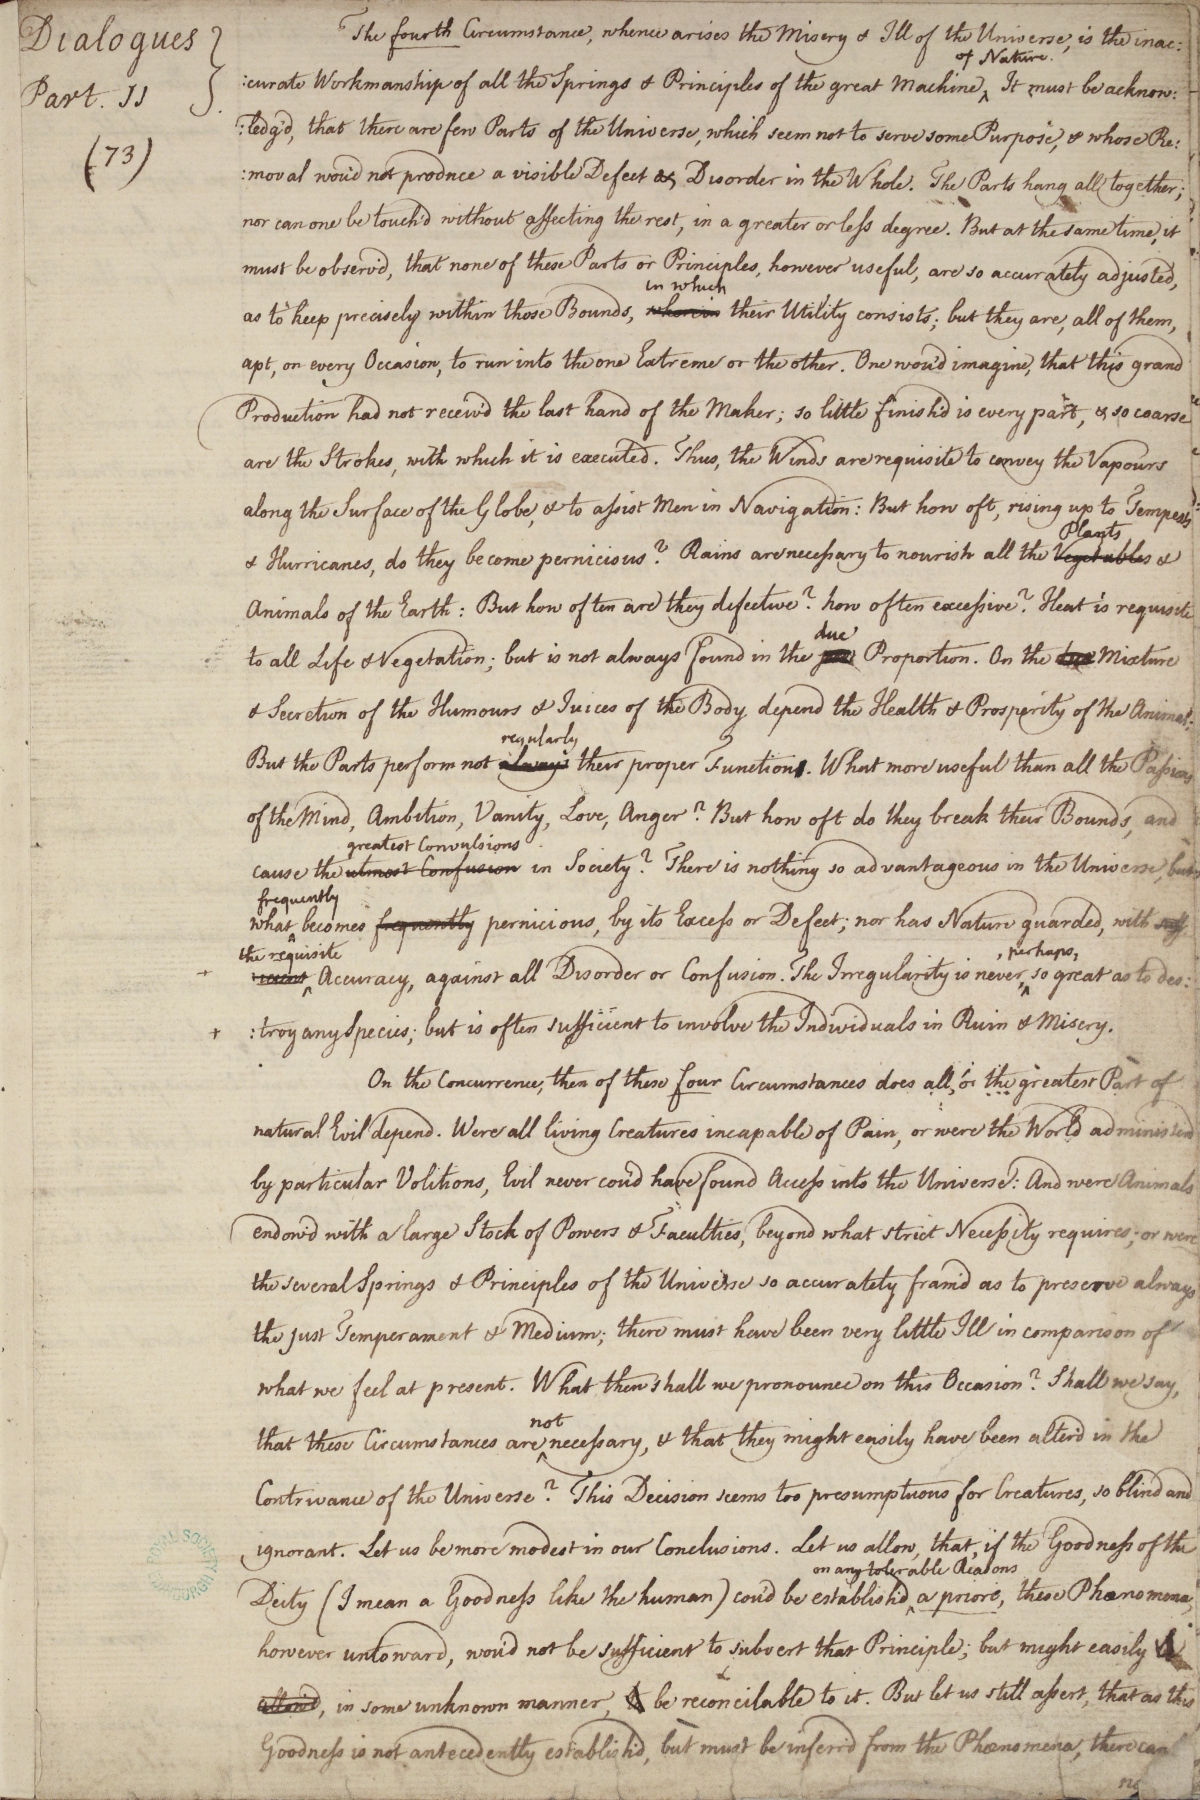 Dialogues
Part. 11
(73)
The fourth Circumstance, whence arises the Misery & Ill of the Universe, is the inac:
of Nature.
:curate Workmanship of all the Springs & Principles of the great Machine ‸ It must be acknow:
:ledg'd, that there are few Parts of the Universe, which seem not to serve some Purpose, & whose Re:
:moval wou'd not produce a visible Defect & Disorder in the Whole. The Parts hang all together;
nor can one be touch'd without affecting the rest, in a greater or less degree. But at the same time, it
must be observ'd, that none of these Parts or Principles, however useful, are so accurately adjusted,
in which
as to keep precisely within those Bounds, wherein their Utility consists; but they are, all of them,
apt, on every Occasion, to run into the one Extreme or the other. One wou'd imagine, that this grand
Production had not receiv'd the last hand of the Maker; so little finish'd is every part, & so coarse
are the Strokes, with which it is executed. Thus, the Winds are requisite to convey the Vapours
along the Surface of the Globe, & to assist Men in Navigation: But how oft, rising up to Tempests
Plants
& Hurricanes, do they become pernicious? Rains are necessary to nourish all the Vegetables &
Animals of the Earth: But how often are they defective? how often excessive? Heat is requisite
due
to all Life & Vegetation; but is not always found in the Proportion. On the Mixture
& Secretion of the Humours & Juices of the Body depend the Health & Prosperity of the Animal:
regularly
But the Parts perform not always their proper Function. What more useful than all the Passions
of the Mind, Ambition, Vanity, Love, Anger? But how oft do they break their Bounds, and
greatest Convulsions
cause the utmost Confusion in Society? There is nothing so advantageous in the Universe, but
frequently
what ‸ becomes frequently pernicious, by its Excess or Defect; nor has Nature guarded, with
the requisite , perhaps,
‸ Accuracy, against all Disorder or Confusion. The Irregularity is never ‸ so great as to des:
:troy any Species; but is often sufficient to involve the Individuals in Ruin & Misery.
On the Concurrence, then of these four Circumstances does all, or the greatest Part of
natural Evil depend. Were all living Creatures incapable of Pain, or were the World administerd
by particular Volitions, Evil never cou'd have found Access into the Universe: And were Animals
endow'd with a large Stock of Powers & Faculties, beyond what strict Necessity requires; or were
the several Springs & Principles of the Universe so accurately fram'd as to preserve always
the just Temperament & Medium; there must have been very little Ill in comparison of
what we feel at present. What then shall we pronounce on this Occasion? Shall we say,
not
that these Circumstances are ‸ necessary, & that they might easily have been alter'd in the
Contrivance of the Universe? This Decision seems too presumptuous for Creatures, so blind and
ignorant. Let us be more modest in our Conclusions. Let us allow, that, if the Goodness of the
on any tolerable Reasons
Deity (I mean a Goodness like the human) cou'd be establish'd ‸ a priore, these Phænomena,
however untoward, wou'd not be sufficient to subvert that Principle; but might easily
, in some unknown manner, be reconcilable to it. But let us still assert, that as this
Goodness is not antecedently establish'd, but must be inferr'd from the Phænomena, there can
no
ROYAL SOCIETY
EDINBURGH